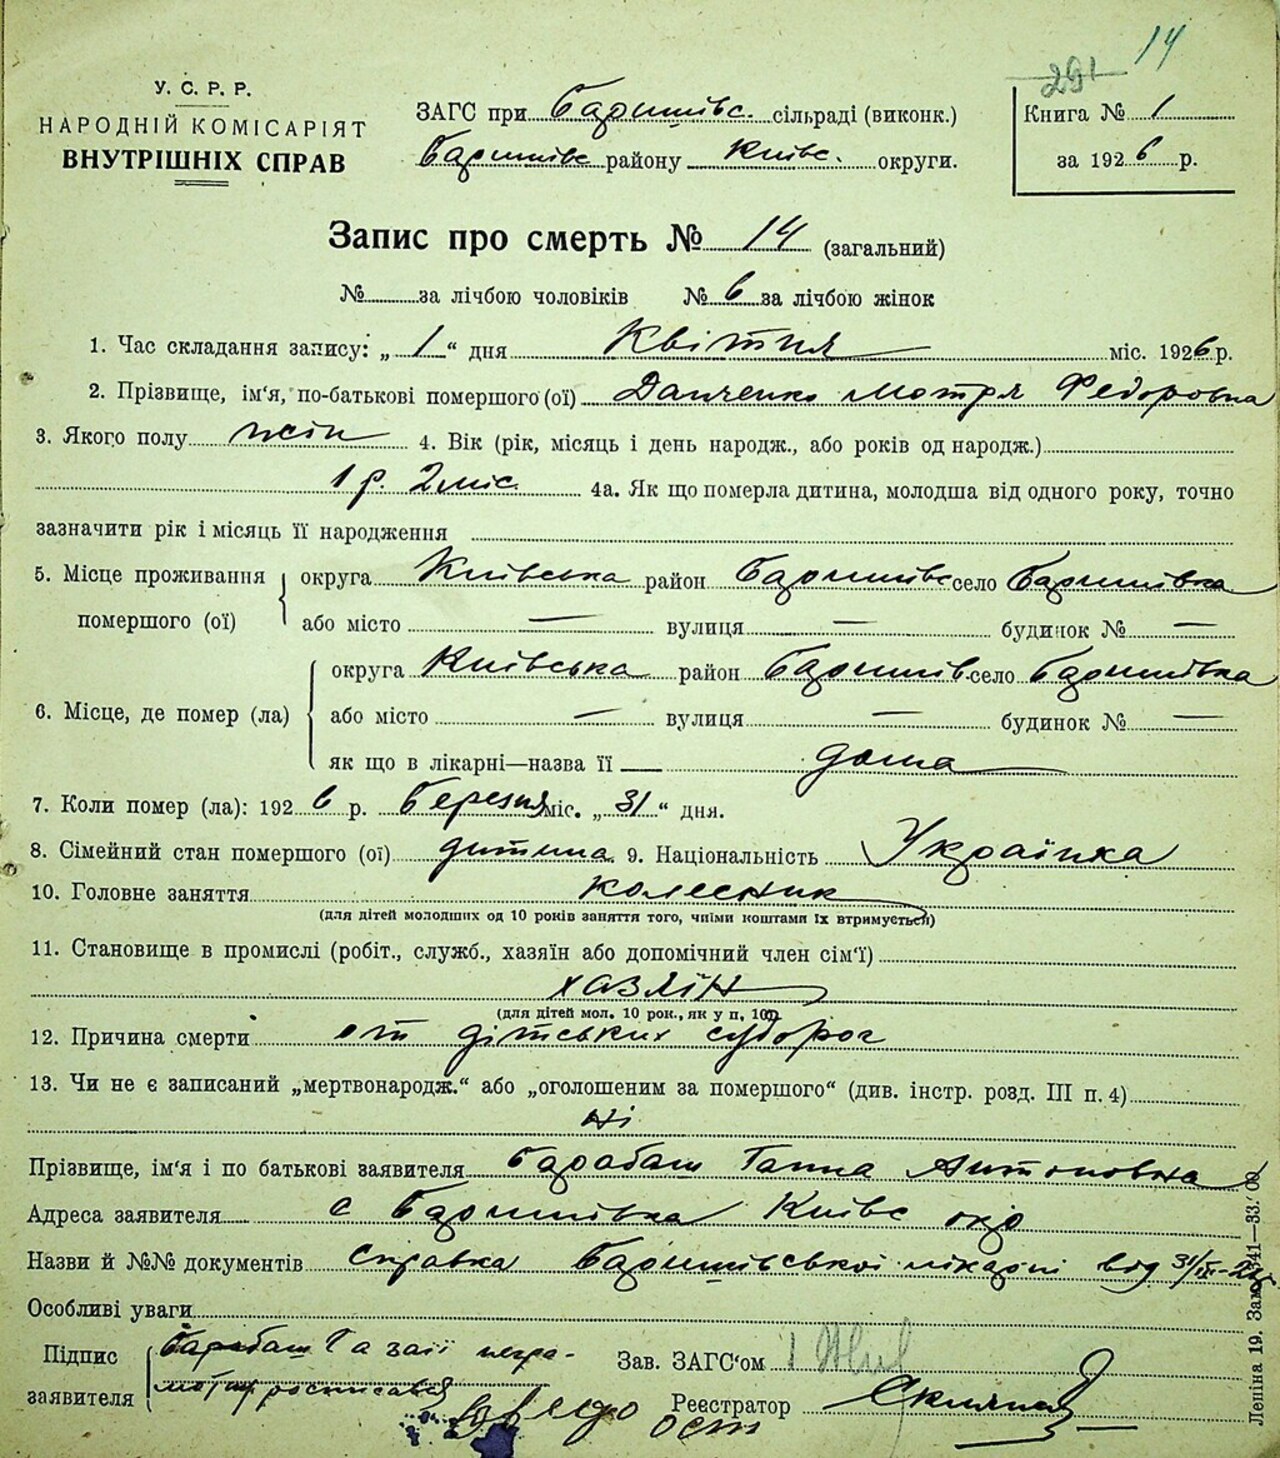 14
291
У. С. Р. Р.
НАРОДНІЙ КОМІСАРІЯТ
ВНУТРІШНІХ СПРАВ
ЗАГС при Баришівс. сільраді (виконк.)
Баришівс району Київс. округи.
Книга № 1
за 1926 р.
Запис про смерть № 14 (загальний)
№ за лічбою чоловіків № 6 за лічбою жінок
1. Час складання запису: „1“ дня Квітня міс. 1926 р.
2. Прізвище, ім'я, по-батькові помершого (ої) Данченко Мотря Федоровна
3. Якого полу жін 4. Вік (рік, місяць і день народж., або років од народж.)
1 р. 2 міс. 4а. Як що померла дитина, молодша від одного року, точно
зазначити рік і місяць її народження
5. Місце проживання помершого (ої) округа Київська район Баришівс село Баришівка
або місто — вулиця — будинок № —
6. Місце, де помер (ла) округа Київська район Баришів. село Баришівка
або місто — вулиця — будинок № —
як що в лікарні—назва її — дома
7. Коли помер (ла): 1926 р. Березня міс. „31“ дня.
8. Сімейний стан помершого (ої) дитина. 9. Національність Українка
10. Головне заняття колесник
(для дітей молодших од 10 років заняття того, чиїми коштами їх втримується)
11. Становище в промислі (робіт., служб., хазяїн або допомічний член сім'ї)
хазяїн
(для дітей мол. 10 рок., як у п. 10)
12. Причина смерти от дітських судорог
13. Чи не є записаний „мертвонародж.“ або „оголошеним за помершого“ (див. інстр. розд. III п. 4)
ні
Прізвище, ім'я і по батькові заявителя Барабаш Ганна Антоновна
Адреса заявителя с Баришівка Київс окр
Назви й №№ документів справка Баришівської лікарні від 31/III-26
Особливі уваги
Підпис заявителя Барабаш Г а за її негра-
мотну росписався
Зав. ЗАГС'ом
Реєстратор
Леніна 19. Зам. 341—33.